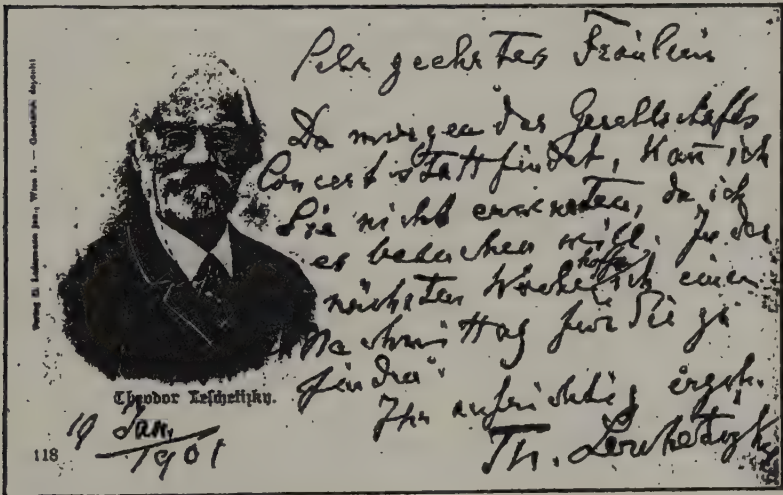 Sehr geehrtes Fräulein
Da morgen das Gesellschafts
Concert stattfindet, kan̄ ich
Sie nicht erwarten, da ich
es besuchen will. In der
nächsten Woche hoffe ich einen
Nachmittag für Sie zu
finden.
Ihr aufrichtig ergeb.
Th. Leschetizky
Theodor Leschetizky.
19 Jan.
1901
118